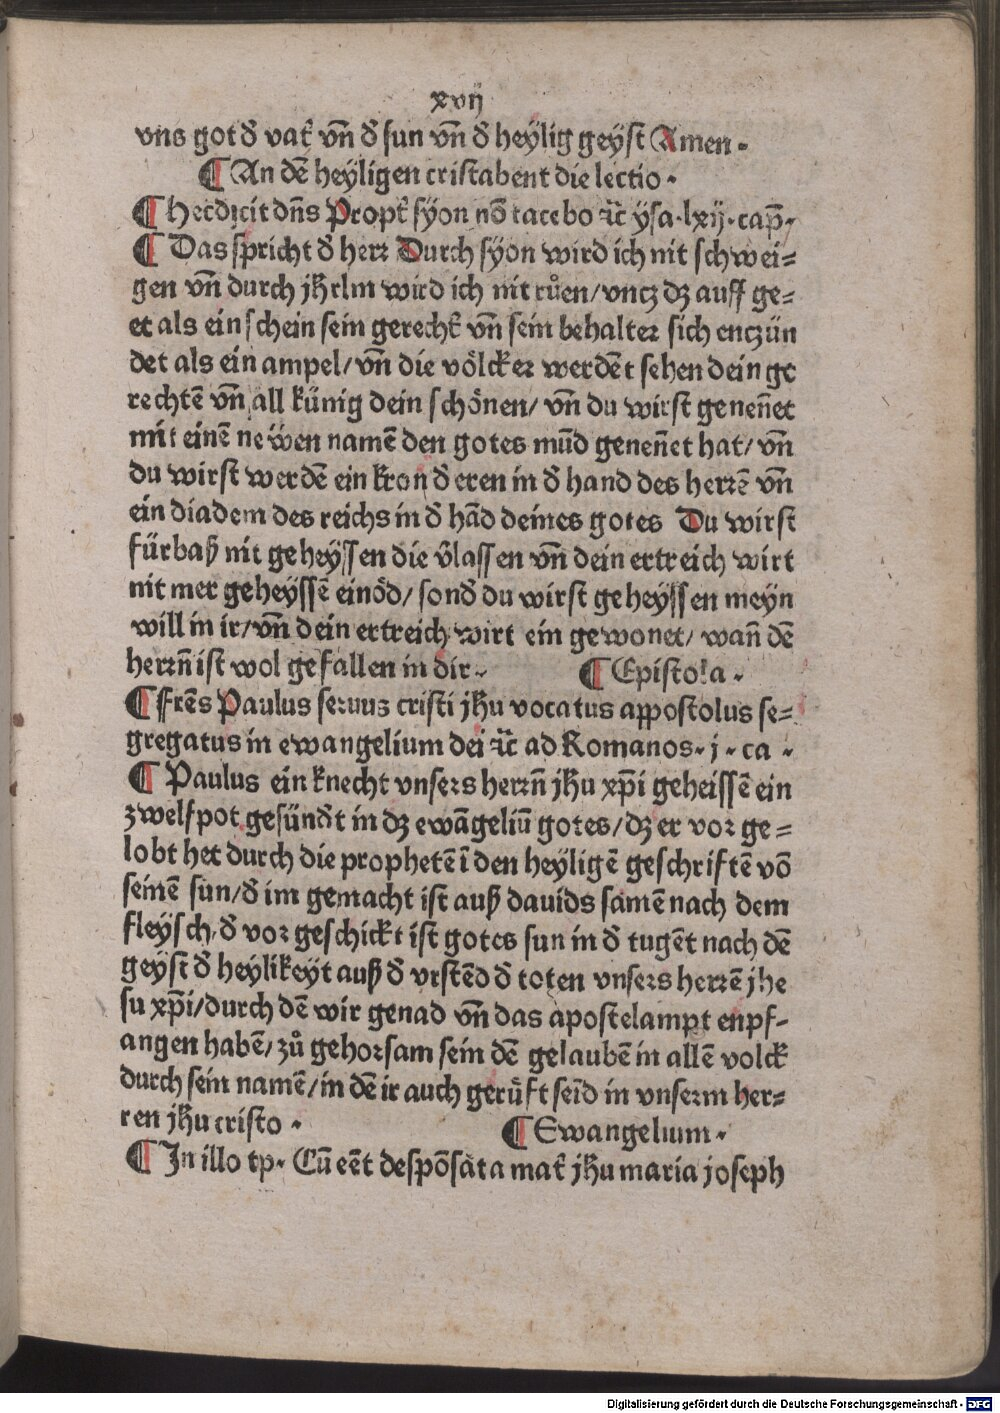 xvij
vns got d̕ vat̕ vn̄ d̕ sun vn̄ d̕ heÿlig geÿst Amen.
¶ An dē heÿligen cristabent die lectio.
¶ Hec dicit dn̄s Propt̕ sÿon nō tacebo ⁊c̄ ysa.lxij.cap̄.
¶ Das spricht d̕ herr Durch sÿon wird ich nit schwei=
gen vn̄ durch jhrl̄m wird ich nit růen/vncz dz auff ge=
et als ein schein sein gerecht̕ vn̄ sein behalter sich enczün
det als ein ampel/vn̄ die völcker werdēt sehen dein ge
rechtē vn̄ all künig dein schönen/ vn̄ du wirst genen̄et
mit einē neẅen namē den gotes mūd genen̄et hat/ vn̄
du wirst werdē ein kron d̕ eren in d̕ hand des herrē vn̄
ein diadem des reichs in d̕ hād deines gotes Du wirst
fürbaß nit geheÿssen die v̕lassen vn̄ dein ertreich wirt
nit mer geheÿssē einöd/ sond̕ du wirst geheÿssen meÿn
will in ir/vn̄ dein ertreich wirt ein gewonet/ wan̄ dē
herrn̄ ist wol gefallen in dir. ¶ Epistola.
¶ ffrēs Paulus seruus cristi jh̄u vocatus appostolus se=
gregatus in ewangelium dei ⁊c̄ ad Romanos.j.ca.
¶ Paulus ein knecht vnsers herrn̄ jh̄u xp̄i geheissē ein
zwelfpot gesünd̕t in dz ewāgeliū gotes/dz er vor ge=
lobt het durch die prophetē ī den heÿligē geschriftē vō
seinē sun/d̕ im gemacht ist auß dauids samē nach dem
fleÿsch/d̕ vor geschickt ist gotes sun in d̕ tugēt nach dē
geÿst d̕ heÿlikeÿt auß d̕ vrstēd d̕ toten vnsers herrē jhe
su xp̄i/durch dē wir genad vn̄ das apostelampt enpf=
angen habē/zů gehorsam sein dē gelaubē in allē volck
durch sein namē/in dē ir auch gerüft seīd in vnserm her=
ren jh̄u cristo. ¶ Ewangelium.
¶ In illo tp. Cū eēt despōsāta mat̕ jh̄u maria joseph
Digitalisierung gefördert durch die Deutsche Forschungsgemeinschaft - DFG